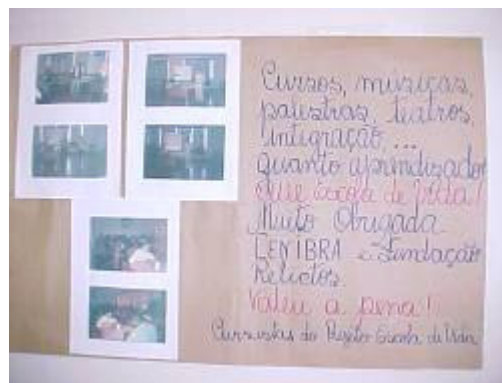 Cursos, músicas,
palestras, teatros,
integração, ...
quanto aprendizado!
Que Escola de Vida!
Muito Obrigada
CENIBRA e Fundação
Relictos.
Valeu a pena!
Cursistas do Projeto Escola de Vida